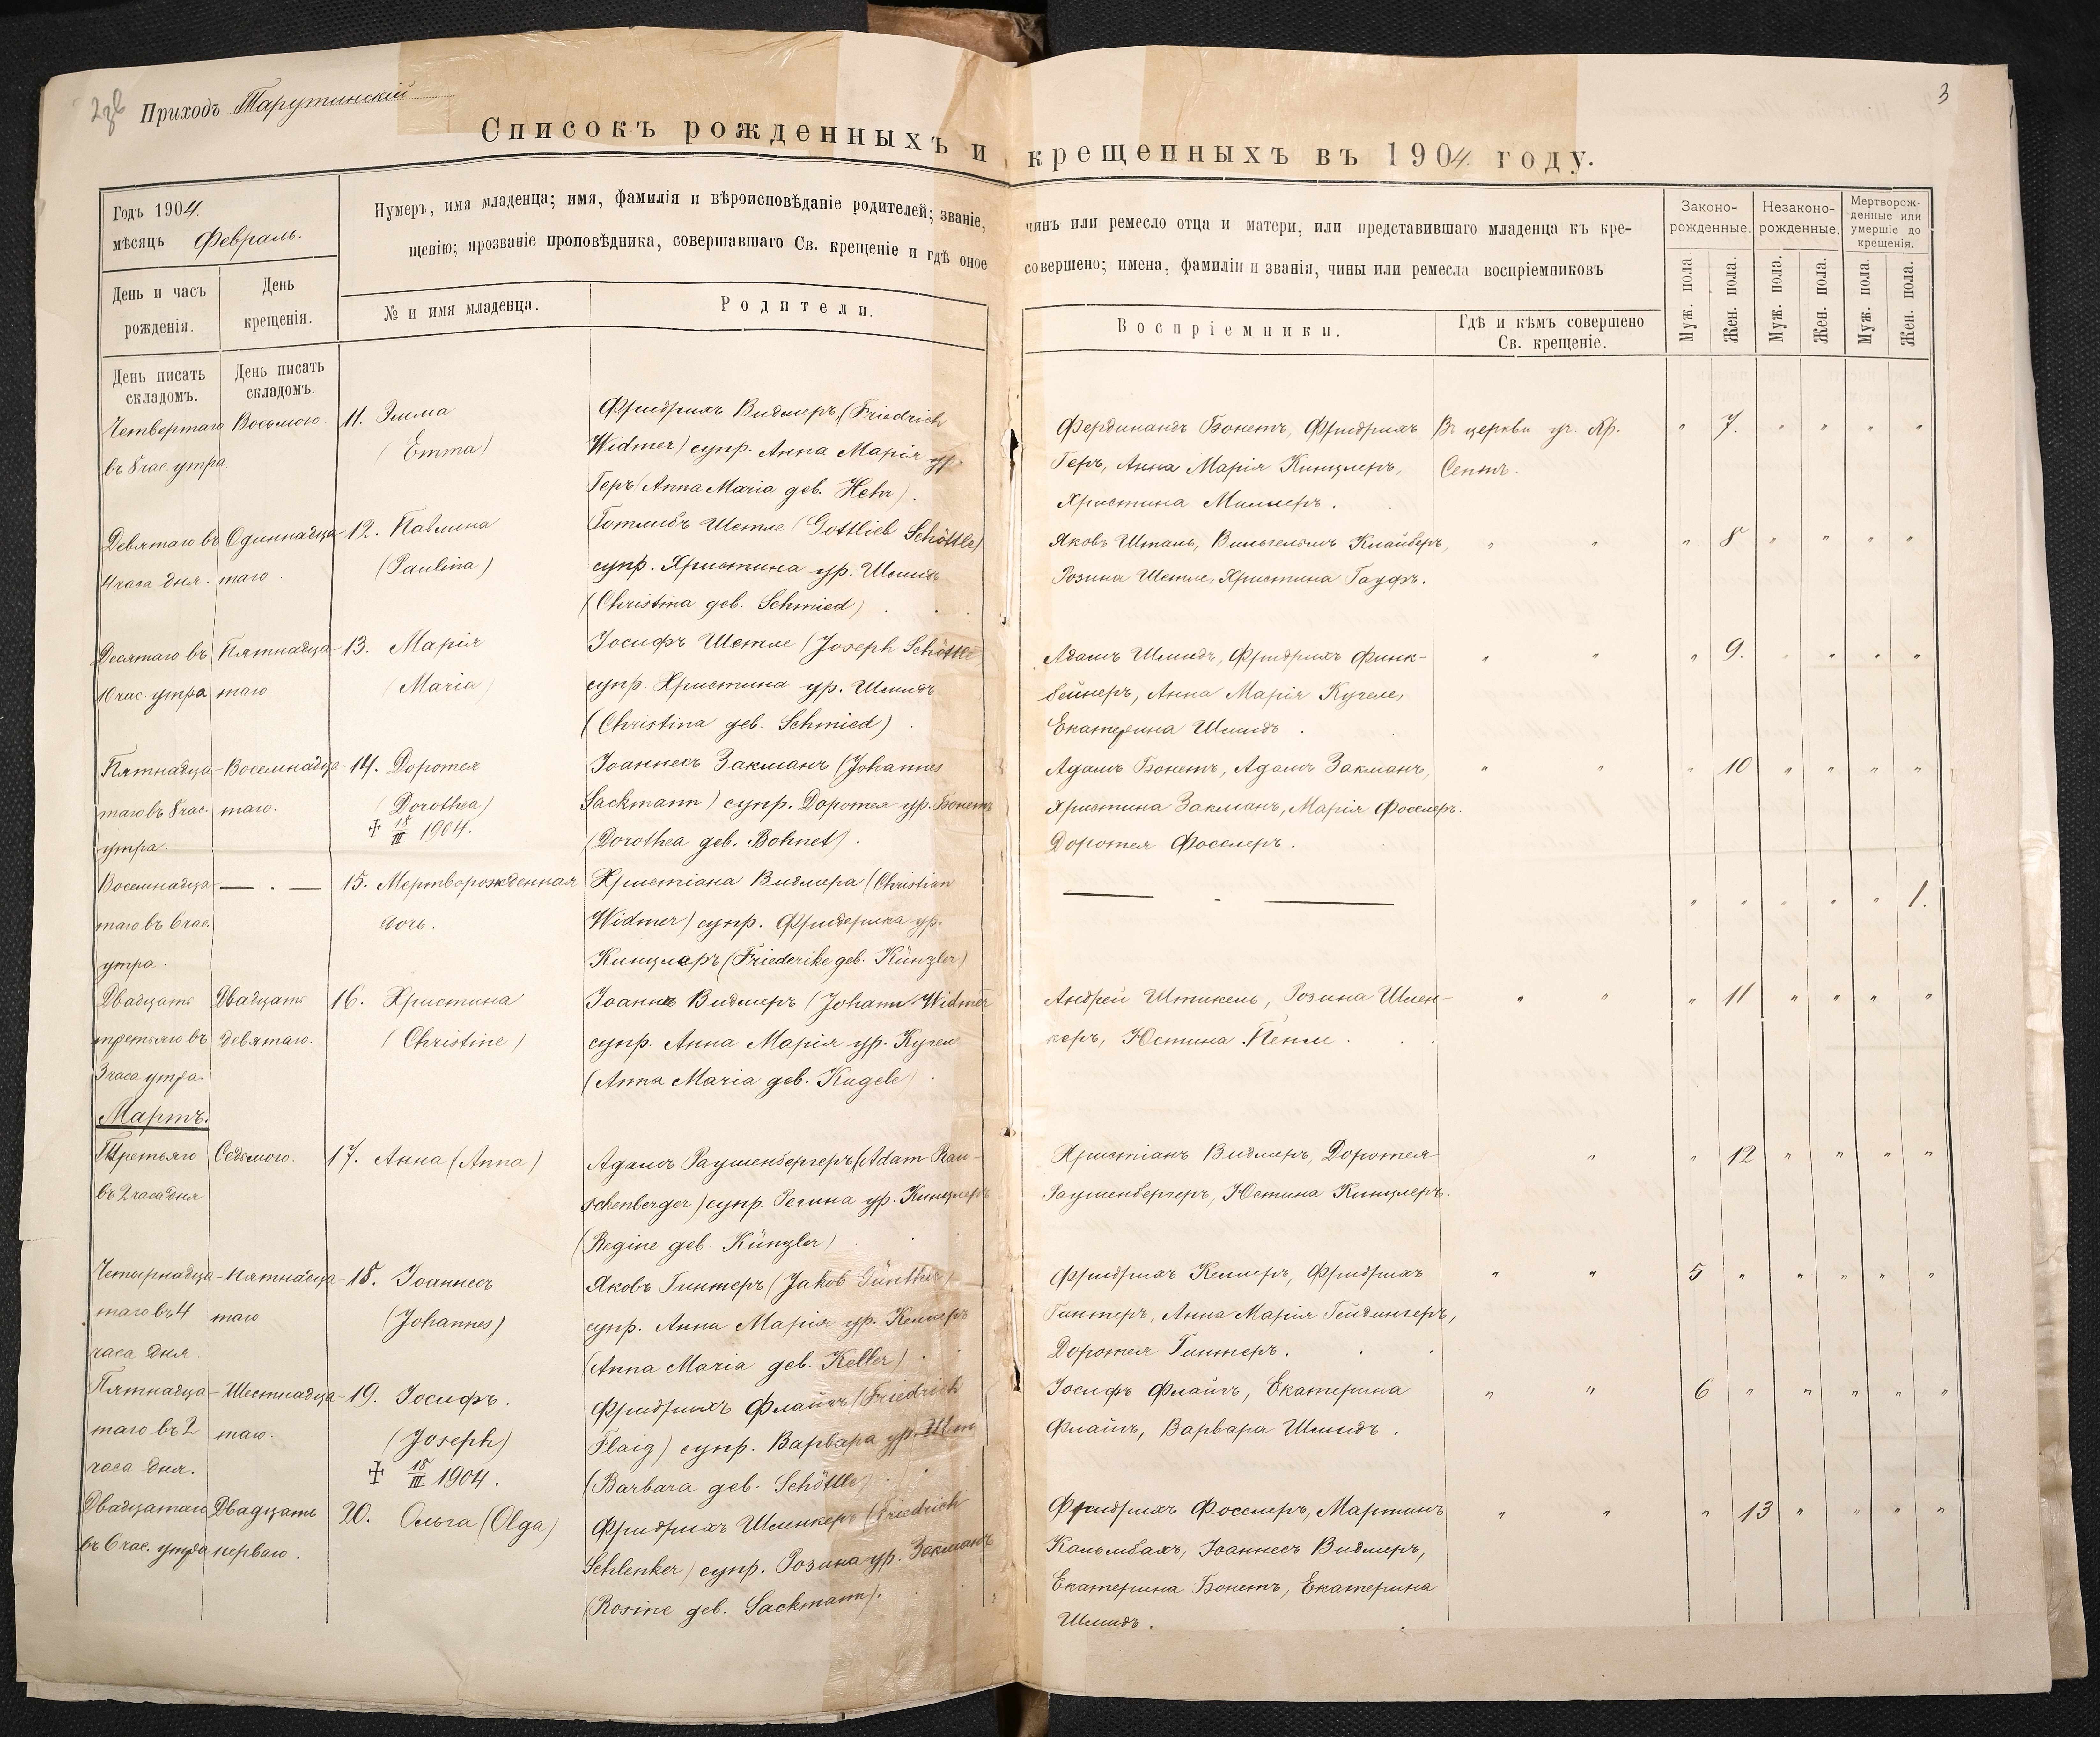 2об Приходъ Тарутинскій
3
Списокъ рожденныхъ и крещенныхъ въ 1904 году.
Годъ 1904.
мѣсяцъ Февраль.
Нумеръ, имя младенца; имя, фамилія и вѣроисповѣданіе родителей; званіе, чинъ или ремесло отца и матери, или представившаго младенца къ кре-
щенію; прозваніе проповѣдника, совершавшаго Св. крещеніе и гдѣ оное совершено; имена, фамиліи и званія, чины или ремесла воспріемниковъ
Законо-
рожденные.
Незаконо-
рожденные.
Мертворож-
денные или
умершіе до
крещенія.
День и часъ
рожденія.
День
крещенія.
№ и имя младенца.
Родители.
Воспріемники.
Гдѣ и кѣмъ совершено
Св. крещеніе.
Муж. пола.
Жен. пола.
Муж. пола.
Жен. пола.
Муж. пола.
Жен. пола.
День писать
складомъ.
День писать
складомъ.
Четвертаго
въ 8 час. утра
Восьмого.
11. Эмма
(Emma)
Фридрихъ Видмеръ (Friedrich
Widmer) супр. Анна Марія ур.
Геръ (Anna Maria geb. Hehr).
Фердинандъ Бонетъ, Фридрихъ
Геръ, Анна Марія Кинцлеръ,
Христина Миллеръ.
Въ церкви уч. Яр.
Сентъ.
" 7. " " " "
Девятаго въ
4 часа дня.
Одиннадца-
таго.
12. Павлина
(Paulina)
Готлибъ Шетле (Gottlieb Schöttle)
супр. Христина ур. Шмидъ
(Christina geb. Schmied).
Яковъ Шталь, Вильгельмъ Клайберъ,
Розина Шетле, Христина Гауфъ.
" "
" 8 " " " "
Десятаго въ
10 час. утра
Пятнадца-
таго.
13. Марія
(Maria)
Іосифъ Шетле (Joseph Schöttle
супр. Христина ур. Шмидъ
(Christina geb. Schmied).
Адамъ Шмидъ, Фридрихъ Финк-
бейнеръ, Анна Марія Кугеле,
Екатерина Шмидъ.
" "
" 9. " " " "
Пятнадца-
таго въ 8 час.
утра.
Восемнадца-
таго.
14. Доротея
(Dorothea)
✝ 18/III 1904.
Іоаннесъ Закманъ (Johannes
Sackmann) супр. Доротея ур. Бонетъ
(Dorothea geb. Bohnet).
Адамъ Бонетъ, Адамъ Закманъ,
Христина Закманъ, Марія Фосслеръ.
Доротея Фосслеръ.
" "
" 10 " " " "
Восемнадца-
таго въ 6 час.
утра.
— . —
15. Мертворожденная
дочь.
Христіана Видмера (Christian
Widmer) супр. Фридерика ур.
Кинцлеръ (Friederike geb. Künzler)
— - —
" " " " " 1.
Двадцать
третьяго въ
3 часа утра.
Двадцать
девятаго.
16. Христина
(Christine)
Іоаннъ Видмеръ (Johann Widmer
супр. Анна Марія ур. Кугеле
(Anna Maria geb. Kugele).
Андрей Штикель, Розина Шлен-
керъ, Юстина Пепле.
" "
" 11 " " " "
Мартъ.
Третьяго
въ 2 часа дня
Седьмого.
17. Анна (Anna)
Адамъ Раушенбергеръ (Adam Rau-
schenberger) супр. Регина ур. Кинцлеръ
(Regine geb. Künzler)
Христіанъ Видмеръ, Доротея
Раушенбергеръ, Юстина Кинцлеръ.
"
" 12 " " " "
Четырнадца-
таго въ 4
часа дня.
Пятнадца-
таго
18. Іоаннесъ
(Johannes)
Яковъ Гинтеръ (Jakob Günther)
супр. Анна Марія ур. Келлеръ
(Anna Maria geb. Keller).
Фридрихъ Келлеръ, Фридрихъ
Гинтеръ, Анна Марія Гейдингеръ,
Доротея Гинтеръ.
" "
5 " " " " "
Пятнадца-
таго въ 2
часа дня.
Шестнадца-
таго.
19. Іосифъ.
(Joseph)
✝ 18/III 1904.
Фридрихъ Флайгъ (Friedrich
Flaig) супр. Варвара ур. Шт
(Barbara geb. Schöttle).
Іосифъ Флайгъ, Екатерина
Флайгъ, Варвара Шмидъ.
" "
6 " " " " "
Двадцатаго
въ 6 час. утра
Двадцать
перваго.
20. Ольга (Olga)
Фридрихъ Шленкеръ (Friedrich
Schlenker) супр. Розина ур. Закманъ
(Rosine geb. Sackmann).
Фридрихъ Фосслеръ, Мартинъ
Кальмбахъ, Іоаннесъ Видмеръ,
Екатерина Бонетъ, Екатерина
Шмидъ.
" "
" 13 " " " "